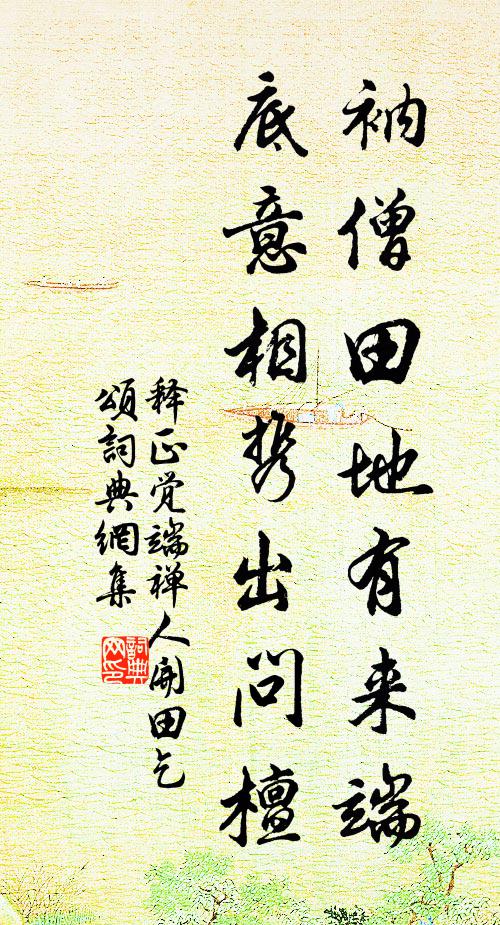 衲僧田地有来端
底意相携出问檀
释正觉端禅人开田乞
颂词典網集
詞典
网印